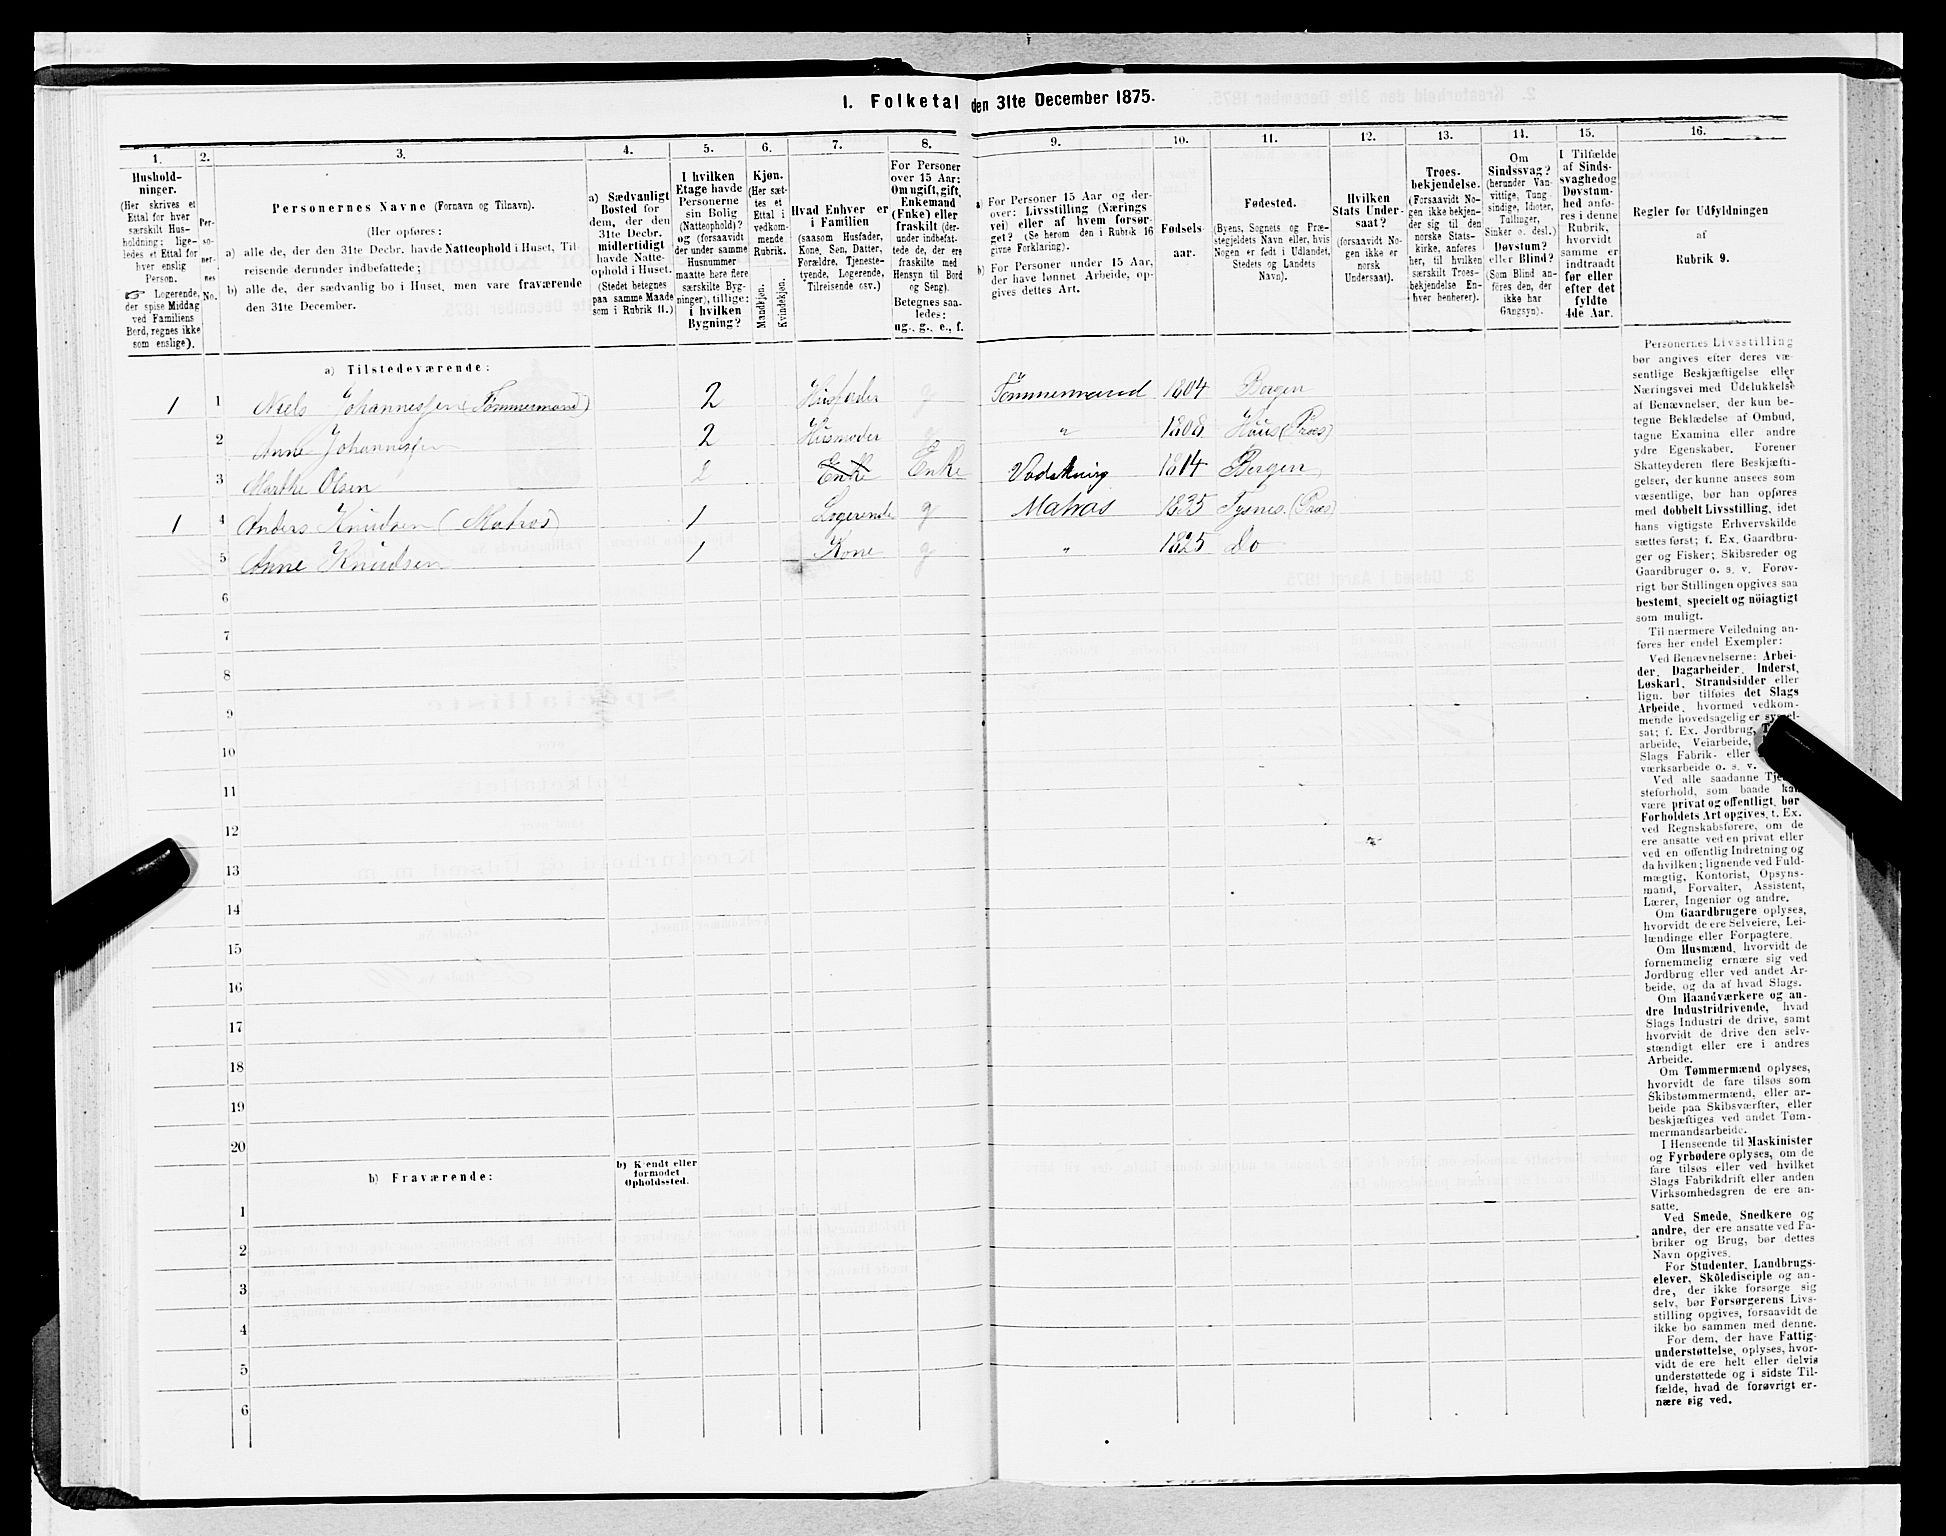 1. Folketal den 31te December 1875.
1. 2. 3. 4. 5. 6. 7. 8. 9. 10. 11. 12. 13. 14. 15. 16.
Hushold-
ninger.
(Her skrives et
Ettal for hver
særskilt Hus-
holdning; lige-
ledes et Ettal for
hver enslig
Person.
Logerende,
der spise Middag
ved Familiens
Bord, regnes ikke
som enslige).
Per-
so-
ner-
nes
No.
Personernes Navne (Fornavn og Tilnavn).
(Her opføres:
a) alle de, der den 31te Decbr. havde Natteophold i Huset, Til-
reisende derunder indbefattede;
b) alle de, der sædvanlig bo i Huset, men vare fraværende
den 31te December.
a) Sædvanligt
Bosted for
dem, der den
31te Decbr.
midlertidigt
havde Natte-
ophold i Huset.
(Stedet betegnes
paa samme Maade
som i Rubrik 11.)
I hvilken
Etage havde
Personerne
sin Bolig
(Natteophold)?
og (forsaavidt
der under samme
Husnummer
maatte høre flere
særskilte Byg-
ninger), tillige:
i hvilken
Bygning?
Kjøn.
(Her sæt-
tes et
Ettal i
vedkom-
mende
Rubrik.
Mandkjøn.
Kvindekjøn.
Hvad Enhver er
i Familien
(saasom Husfader,
Kone, Søn, Datter,
Forældre, Tjeneste-
tyende, Logerende,
Tilreisende osv.)
For Personer
over 15 Aar:
Om ugift, gift,
Enkemand
(Enke) eller
fraskilt (der-
under indbefat-
tede de, der ere
fraskilte med
Hensyn til Bord
og Seng).
Betegnes saa-
ledes:
ug., g., e., f.
a) For Personer 15 Aar og der-
over: Livsstilling (Nærings
vei) eller af hvem forsør-
get? (Se herom den i Rubrik 16
givne Forklaring).
b) For Personer under 15 Aar,
der have lønnet Arbeide, op-
gives dettes Art.
Fødsels-
aar.
Fødested.
(Byens, Sognets og Præ-
stegjeldets Navn eller, hvis
Nogen er født i Udlandet,
Stedets og Landets
Navn).
Hvilken
Stats Under-
saat?
(forsaavidt No-
gen ikke er
norsk
Undersaat).
Troes-
bekjendelse.
(Forsaavidt No-
gen ikke bekjen-
der sig til den
norske Stats-
kirke, anføres
her, til hvilken
særskilt Troes-
bekjendelse En-
hver henhører).
Om
Sindssvag?
(herunder Van-
vittige, Tung-
sindige, Idioter,
Tullinger,
Sinker o. desl.)
Døvstum?
eller Blind?
(Som Blind an-
føres den, der
ikke har
Gangsyn).
I Tilfælde
af Sinds-
svaghed og
Døvstum-
hed anfø-
res i denne
Rubrik,
hvorvidt
samme er
indtraadt
før eller
efter det
fyldte
4de Aar.
Regler for Udfyldningen
af
Rubrik 9.
a) Tilstedeværende:
1 1 Niels Johannessen (Tömmermand) 2 Husfader g Tömmermand 1804 Bergen
2 Anne Johannessen 2 Husmoder g " 1808 Haus (Præs)
3 Marthe Olsen 2 Enke Enke Vadskning 1814 Bergen
1 4 Anders Knudsen (Matros) 1 Logerende g Matros 1835 Tysnes. (Præs)
5 Anne Knudsen 1 Kone g " 1825 Do
6
7
8
9
10
11
12
13
14
15
16
17
18
19
20
b) Fraværende:
b) Kjendt eller
formodet
Opholdssted.
1
2
3
4
5
6
Personernes Livsstilling
bør angives efter deres væ-
sentlige Beskjæftigelse eller
Næringsvei med Udelukkelse
af Benævnelser, der kun be-
tegne Beklædelse af Ombud,
tagne Examina eller andre
ydre Egenskaber. Forener
Skatteyderen flere Beskjæfti-
gelser, der kunne ansees som
væsentlige, bør han opføres
med dobbelt Livsstilling, idet
hans vigtigste Erhvervskilde
sættes først; f. Ex. Gaardbru-
ger og Fisker; Skibsreder og
Gaardbruger o. s. v. Forøv-
rigt bør Stillingen opgives saa
bestemt, specielt og nöiagtigt
som muligt.
Til nærmere Veiledning an-
føres her endel Exempler:
Ved Benævnelserne: Arbei-
der, Dagarbeider, Inderst,
Løskarl, Strandsidder eller
lign. bør tilføies det Slags
Arbeide, hvormed vedkom-
mende hovedsagelig er syssel-
sat; f. Ex. Jordbrug,
arbeide, Veiarbeide,
Slags Fabrik- eller
værksarbeide o. s. v.
Ved alle saadanne Tje-
steforhold, som baade kan
være privat og offentligt, bør
Forholdets Art opgives, t. Ex.
ved Regnskabsførere, om de
ere ansatte ved en privat eller
ved en offentlig Indretning og
da hvilken; lignende ved Fuld-
mægtig, Kontorist, Opsyns-
mand, Forvalter, Assistent,
Lærer, Ingeniør og andre.
Om Gaardbrugere oplyses,
hvorvidt de ere Selveiere, Lei-
lændinge eller Forpagtere.
Om Husmænd, hvorvidt de
fornemmelig ernære sig ved
Jordbrug eller ved andet Ar-
beide, og da af hvad Slags.
Om Haandværkere og an-
dre Industridrivende, hvad
Slags Industri de drive, samt
hvorvidt de drive den selv-
stændigt eller ere i andres
Arbeide.
Om Tømmermænd oplyses,
hvorvidt de fare tilsøs som
Skibstømmermænd, eller ar-
beide paa Skibsværfter, eller
beskjæftiges ved andet Tøm-
mermandsarbeide.
I Henseende til Maskinister
og Fyrbødere oplyses, om de
fare tilsøs eller ved hvilket
Slags Fabrikdrift eller anden
Virksomhedsgren de ere an-
satte.
Ved Smede, Snedkere og
andre, der ere ansatte ved Fa-
briker og Brug, bør dettes
Navn opgives.
For Studenter, Landbrugs-
elever, Skôledisciple og an-
dre, der ikke forsørge sig
selv, bør Forsørgerens Livs-
stilling opgives, forsaavidt de
ikke bo sammen med denne.
For dem, der have Fattig-
understøttelse, oplyses, hvor-
vidt de ere helt eller delvis
understøttede og i sidste Til-
fælde, hvad de forøvrigt er-
nære sig ved.